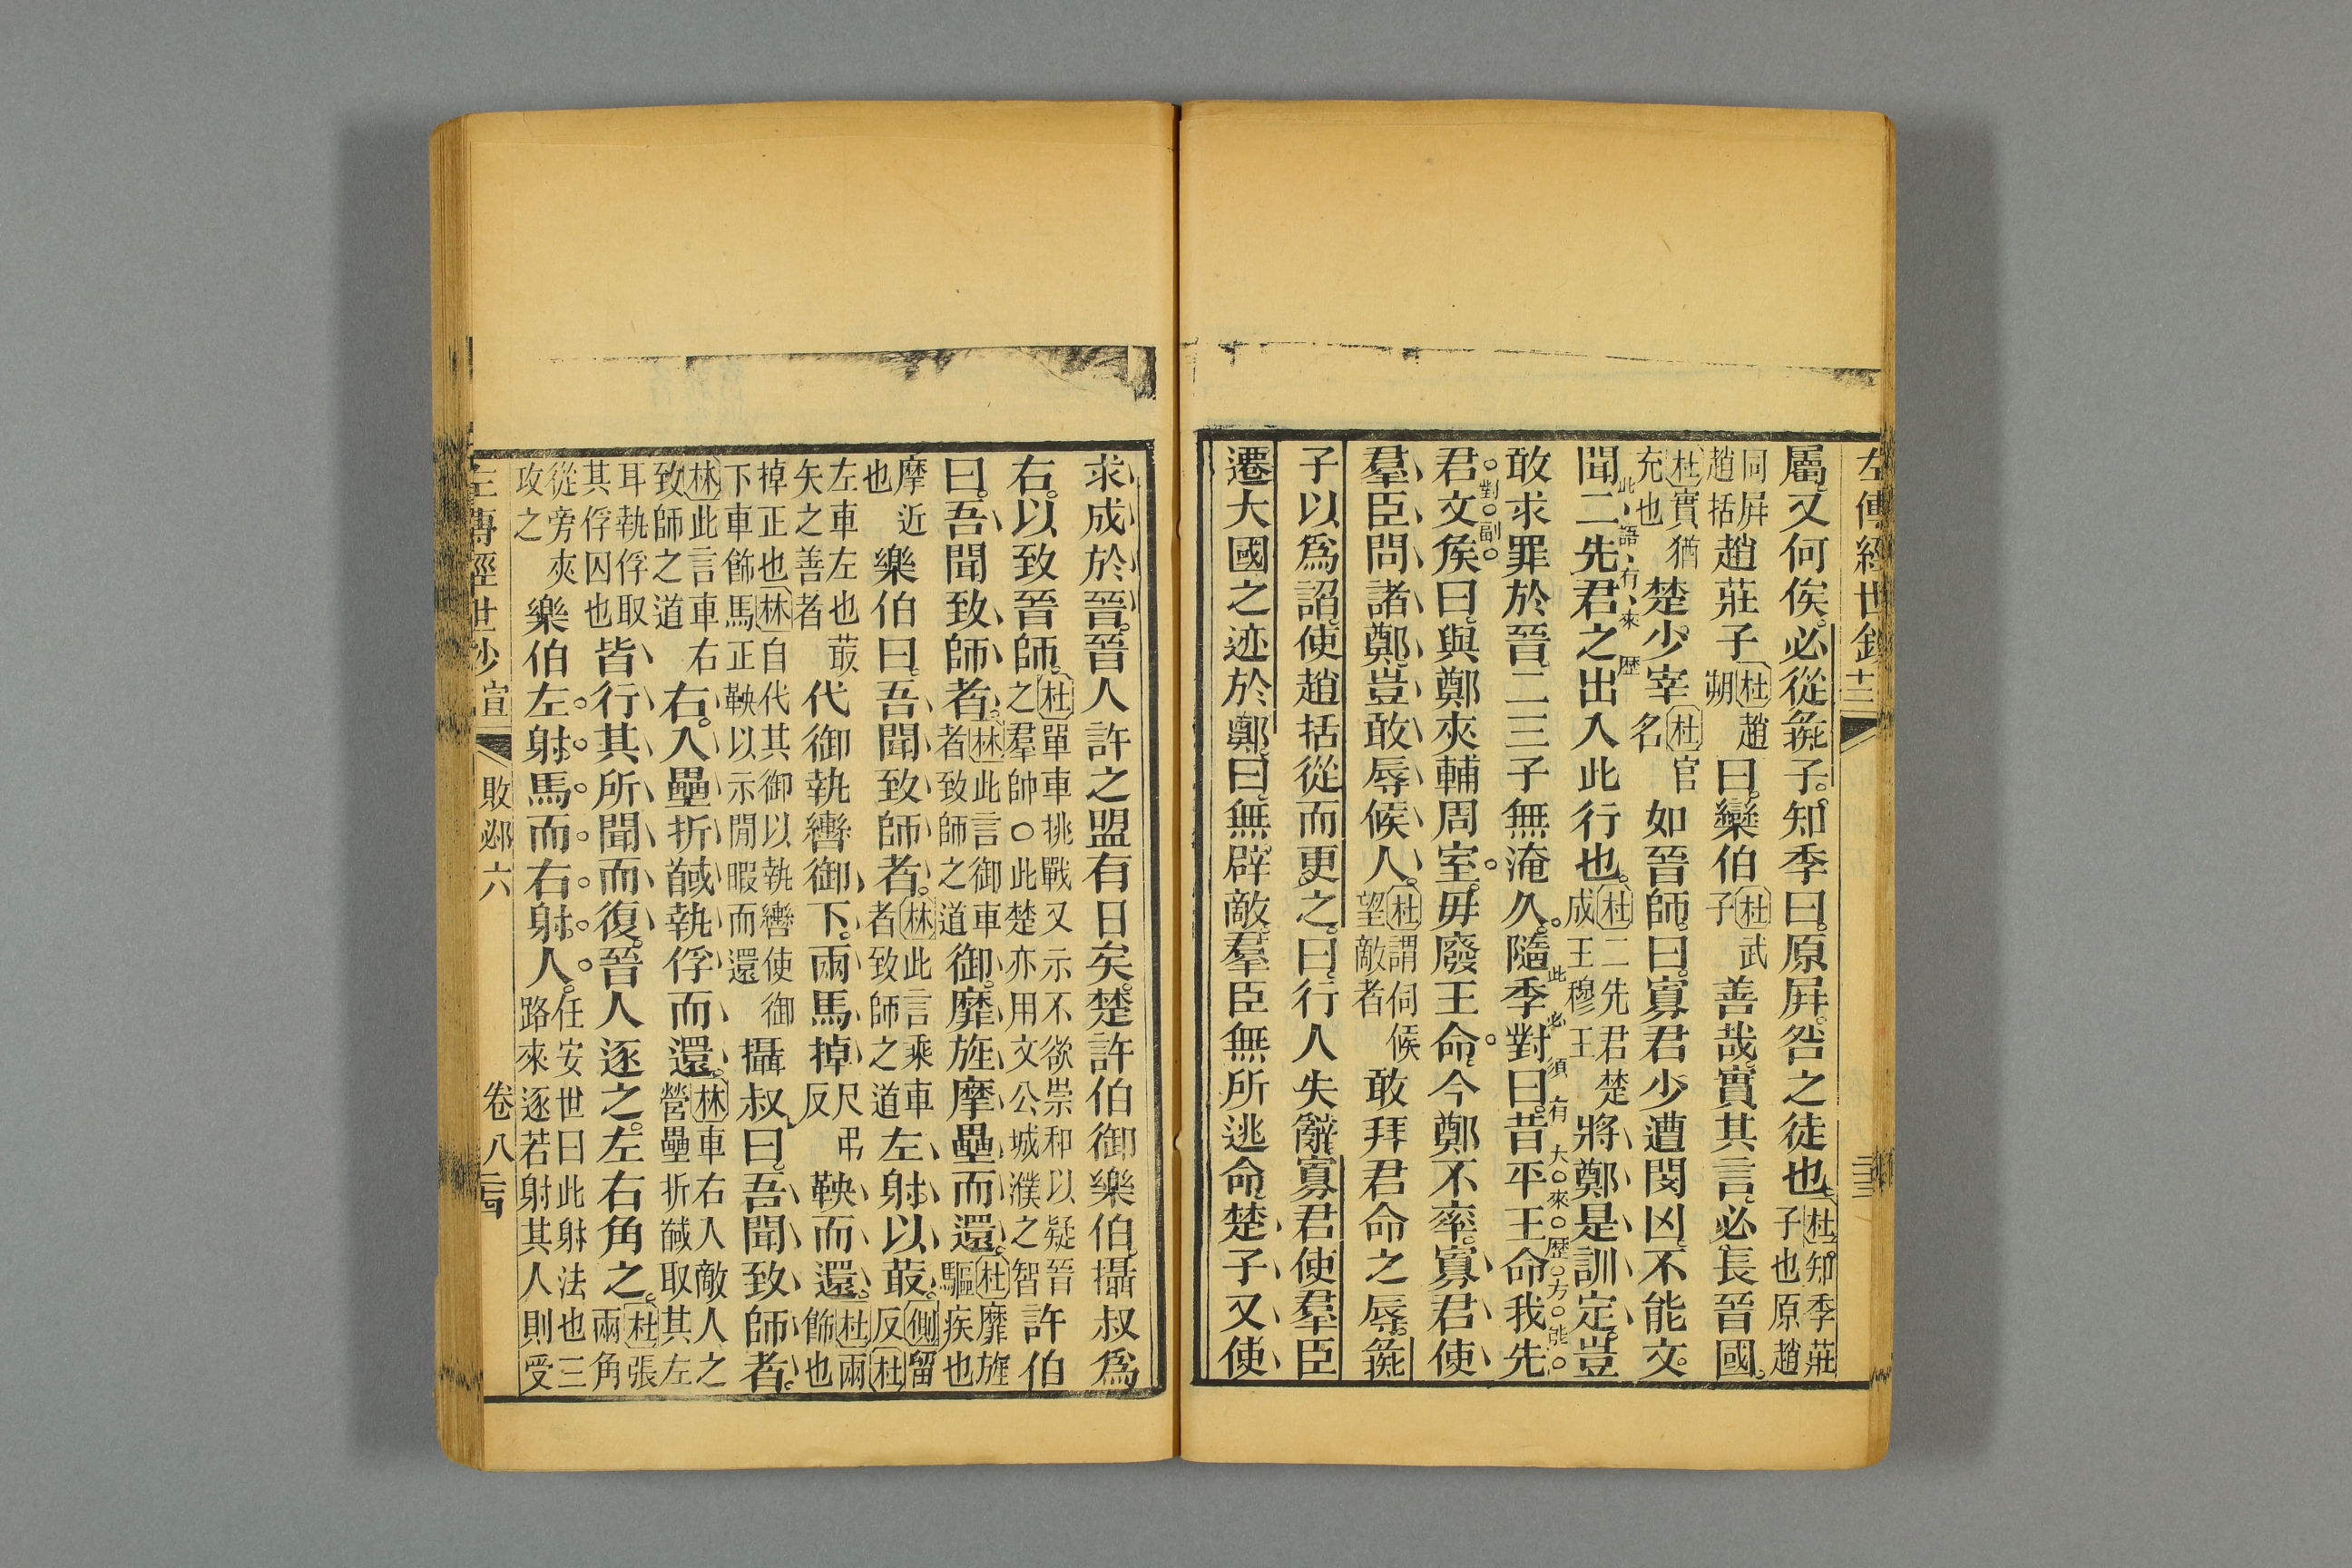 左傳經世鈔
屬又何俟必從彘子知季曰原屏咎之徒也杜知季莊子也原趙
同屏趙括趙莊子杜趙朔曰欒伯杜武子善哉實其言必長晉國
杜實猶充也楚少宰杜官名如晉師曰寡君少遭閔凶不能文
聞二先君之出入此行也杜二先君楚成王穆王將鄭是訓定豈
此語有來歷
敢求罪於晉二三子無淹久隨季對曰昔平王命我先
此必須有大來歷方能
君文矦曰與鄭夾輔周室毋廢王命今鄭不率寡君使
對副
羣臣問諸鄭豈敢辱候人杜謂伺候望敵者敢拜君命之辱彘
子以爲諂使趙括從而更之曰行人失辭寡君使羣臣
遷大國之迹於鄭曰無辟敵羣臣無所逃命楚子又使
求成於晉晉人許之盟有日矣楚許伯御樂伯攝叔爲
右以致晉師杜單車挑戰又示不欲崇和以疑晉之羣帥○此楚亦用文公城濮之智許伯
曰吾聞致師者林此言御車者致師之道御靡旌摩壘而還杜靡旌驅疾也
摩近也樂伯曰吾聞致師者林此言乘車者致師之道左射以菆側留反杜
左車左也菆矢之善者代御執轡御下兩馬掉尺弔反鞅而還杜兩飾也
掉正也林自代其御以執轡使御下車飾馬正鞅以示閒暇而還攝叔曰吾聞致師者
林此言車右致師之道右入壘折馘執俘而還林車右入敵人之營壘折馘取其左
耳執俘取其俘囚也皆行其所聞而復晉人逐之左右角之杜張兩角
從旁夾攻之樂伯左射馬而右射人任安世曰此射法也三路來逐若射其人則受
左傳經世鈔 宣 敗邲六 卷八